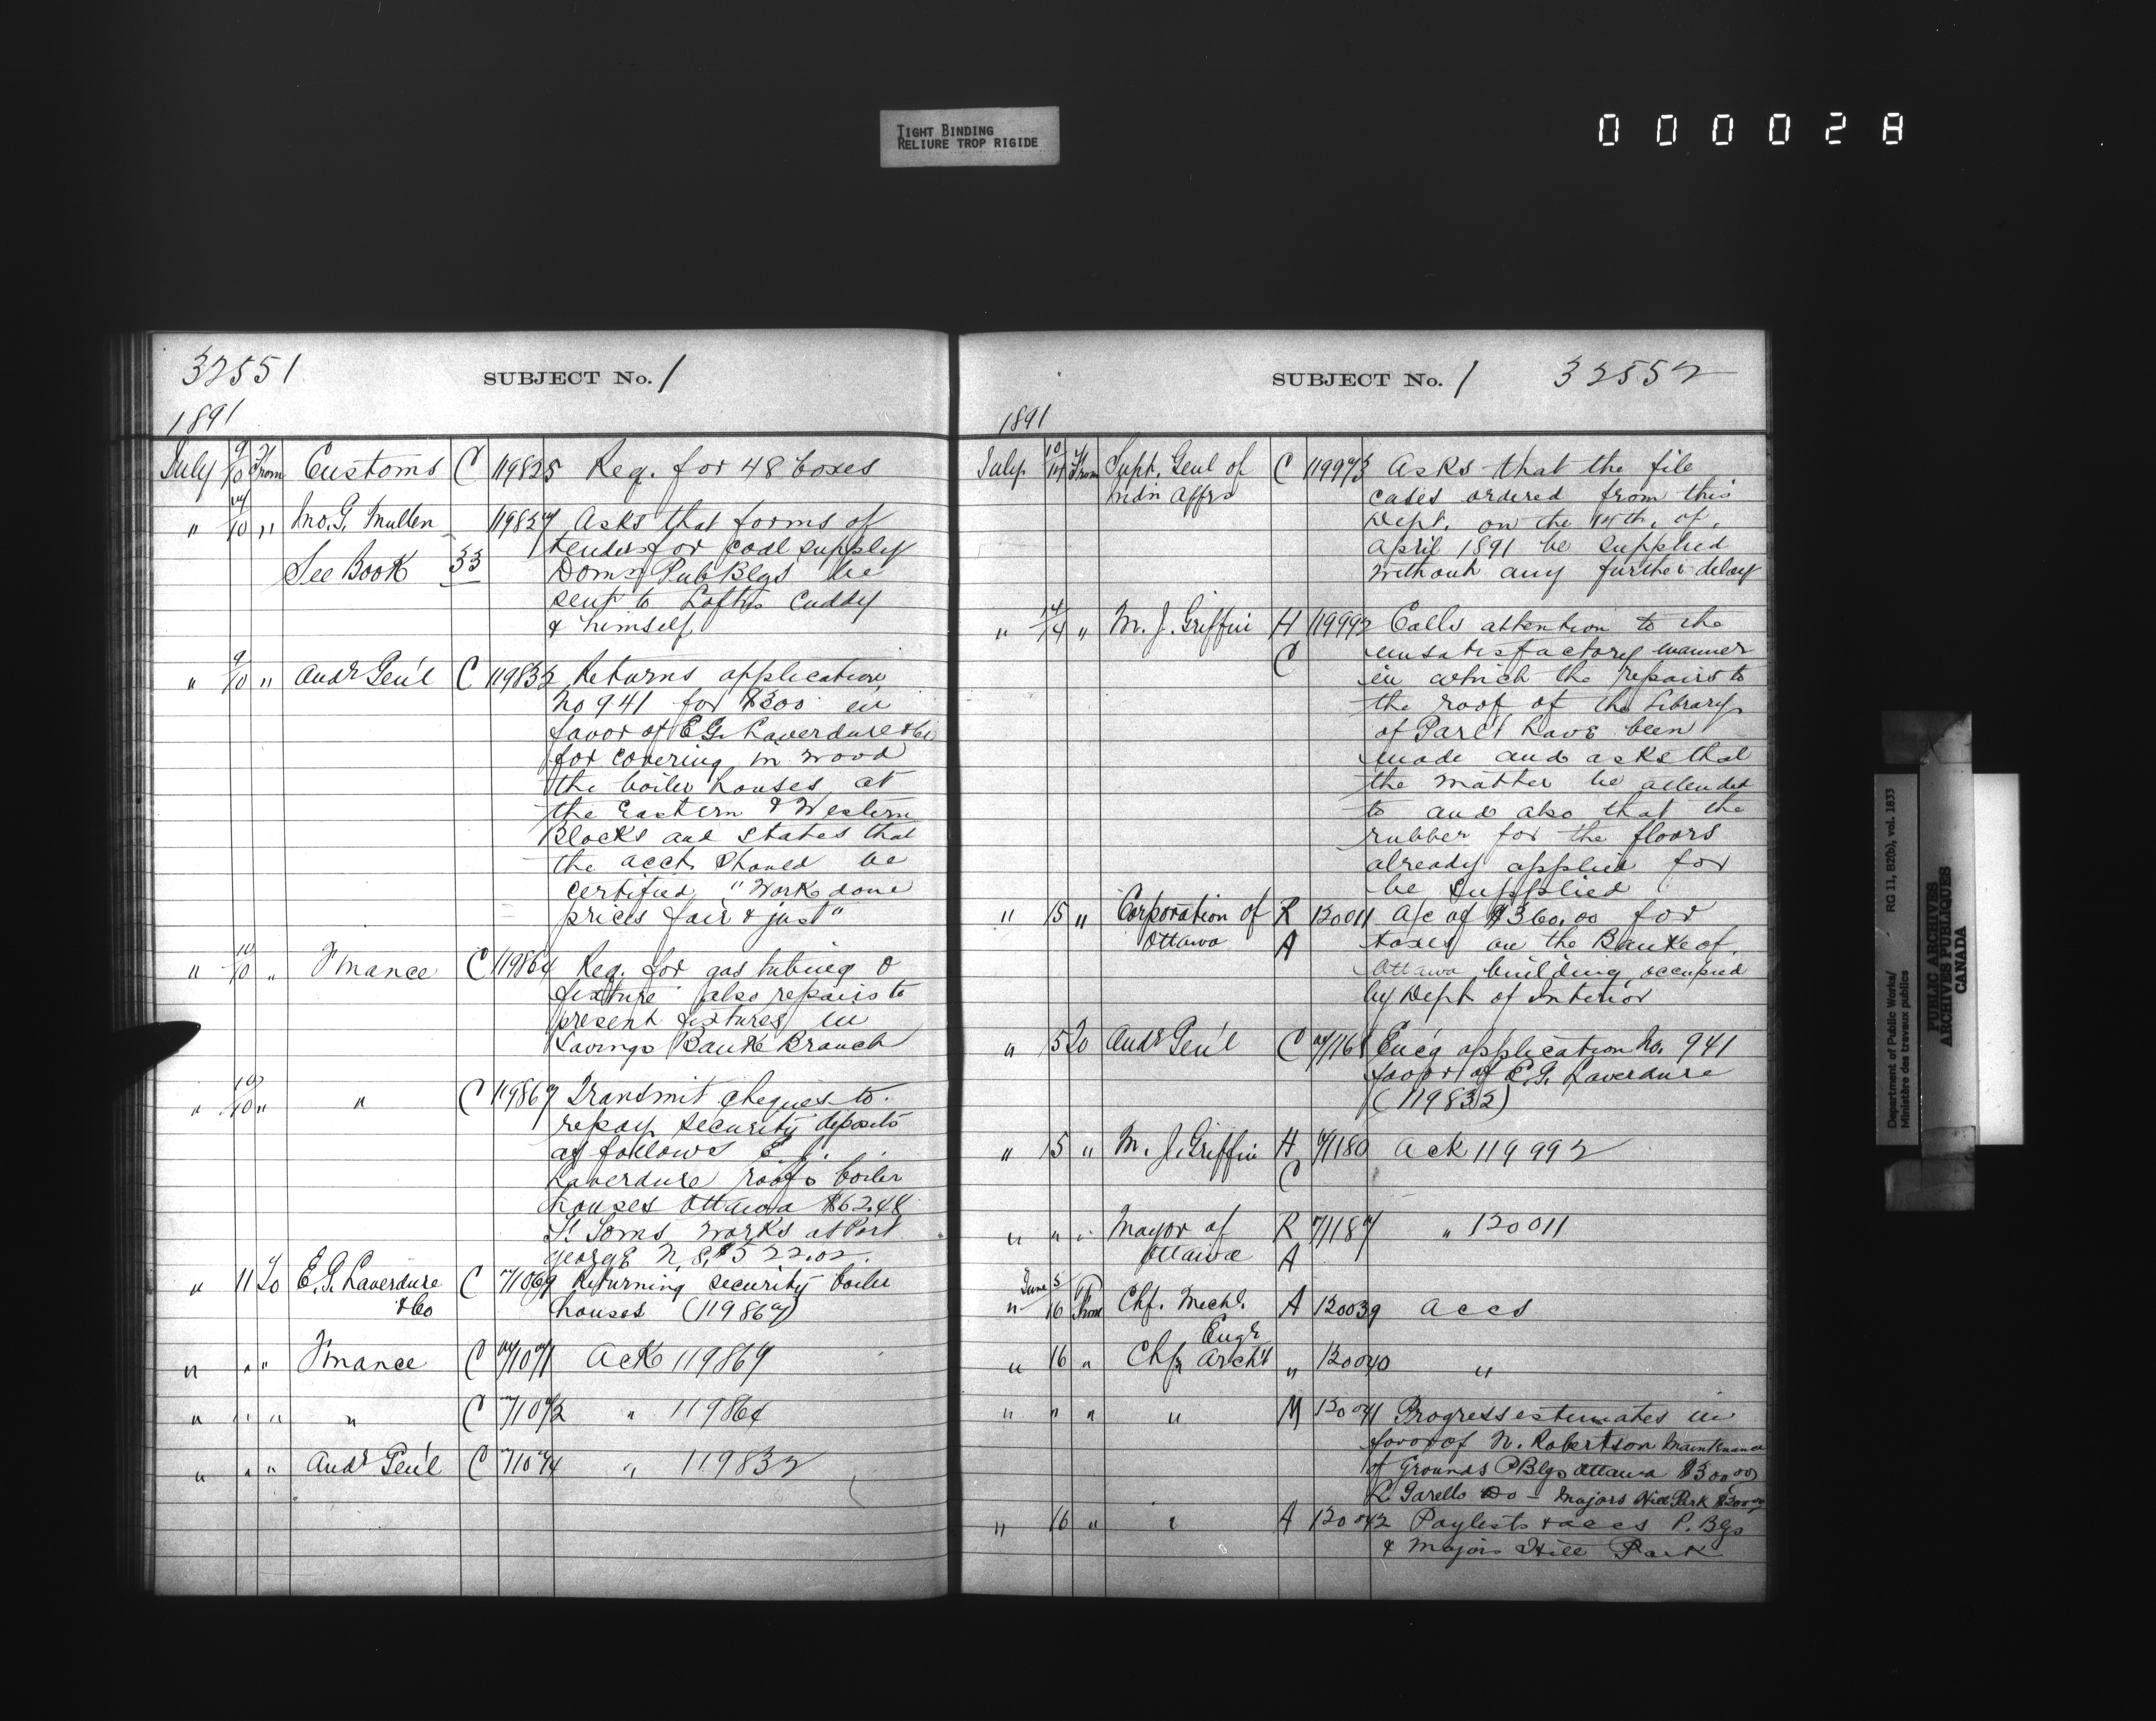 TIGHT BINDING
RELIURE TROP RIGIDE
000028
32551
SUBJECT No. 1
1891
July 9/10 From Customs C 119825 Req. for 48 boxes
" 7/10 " Jno. G. Mullen 119827 Asks that forms of
tender for coal supply
See Book 33 Domn Pub Blgs be
sent to Loftus Cuddy
& himself
" 9/10 " Audr Gen'l C 119832 Returns application
No 941 for $300 in
favor of E. G. Laverdure & Co
for covering in wood
the boiler houses at
the Eastern & Western
Blocks and states that
the acct should be
certified "Work done
prices fair & just"
" 10/10 " Finance C 119864 Req. for gas tubing &
fixture also repairs to
present fixtures in
Savings Bank Branch
" 10/10 " " C 119867 Transmit cheques to
repay security deposits
as follows E. G.
Laverdure roofs boiler
houses Ottawa $62.48
works at Port
George N.S. $522.02.
" 11 To E. G. Laverdure C 71069 Returning security boiler
& Co houses (119867)
" " " Finance C 71071 Ack 119867
" " " " C 71072 " 119864
" " " Audr Gen'l C 71074 " 119832
SUBJECT No. 1 32552
1891
July 10/14 From Supt. Genl of C 119973 Asks that the file
Indn Affrs cases ordered from this
Dept. on the 14th. of
April 1891 be supplied
without any further delay
" 14/14 " M. J. Griffin H 119992 Calls attention to the
C unsatisfactory manner
in which the repairs to
the roof of the Library
of Parl't have been
made and asks that
the matter be attended
to and also that the
rubber for the floors
already applied for
be supplied
" 15 " Corporation of R 120011 A/c of $360.00 for
Ottawa A taxes on the Bank of
Ottawa building occupied
by Dept of Interior
" 15 To Audr Gen'l C 71161 Enc'g application No. 941
favor of E. G. Laverdure
(119832)
" 15 " M. J. Griffin H 71180 Ack 119992
C
" " " Mayor of R 71187 " 120011
Ottawa A
June 5
" 16 From Chf. Mechl. A 120039 Accs
Engr
" 16 " Chf Archt " 120040 "
" " " " M 120041 Progress estimates in
favor of N. Robertson Maintenance
of Grounds P Blgs Ottawa $300.00
Do - Majors Hill Park $200.00
" 16 " " A 120042 Paylists & accs P. Blgs
& Majors Hill Park
Department of Public Works/ RG 11, B2(b), vol. 1833
Ministère des travaux publics
PUBLIC ARCHIVES
ARCHIVES PUBLIQUES
CANADA